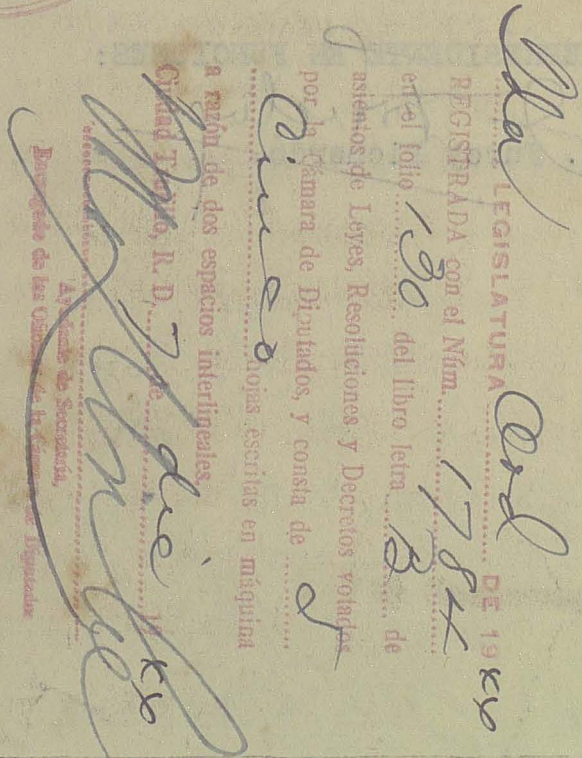 2da LEGISLATURA Ord DE 19
REGISTRADA con el Núm. 1784
en el folio 130 del libro letra B de
asientos de Leyes, Resoluciones y Decretos votados
por la Cámara de Diputados, y consta de
Cinco hojas escritas en máquina
a razón de dos espacios interlineales.
Ciudad Trujillo, R. D., 7 de dic 19
Ayudante de Secretaría,
Encargado de las Oficinas de la Cámara de Diputados